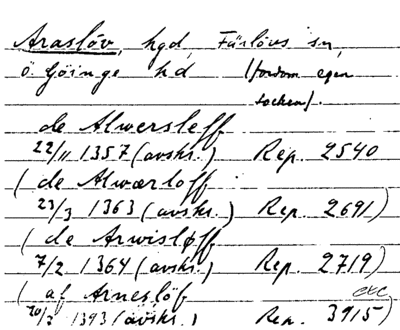 Araslöv, hgd, Färlövs sn,
Ö. Göinge hd (fordom egen
socken).
de Alwersleff
22/11 1357 (avskr.) Rep. 2540
(de Alwærloff
23/3 1363 (avskr.) Rep. 2691)
(de Arwisløff
7/2 1364 (avskr.) Rep. 2719)
(af Arneslöf etc
1393 (avskr.) Rep. 3915)